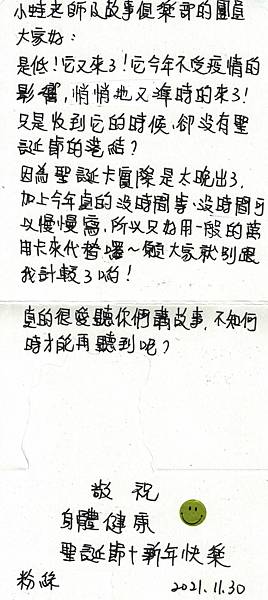 小蛙老師及故事俱樂部的團員
大家好：
是低！它又來了！它今年不受疫情的
影響，悄悄地又準時的來了！
又是收到它的時候，卻沒有聖
誕節的裝皓？
因為聖誕卡實際是太晚出了，
加上今年真的沒時間等、沒時間可
以慢慢寫，所以只好用一般的萬
用卡來代替囉～願大家就別跟
我計較了啲！
真的很愛聽你們講故事，不知何
時才能再聽到呢？
敬祝
身體健康
聖誕節+新年快樂
粉絲
2021.11.30